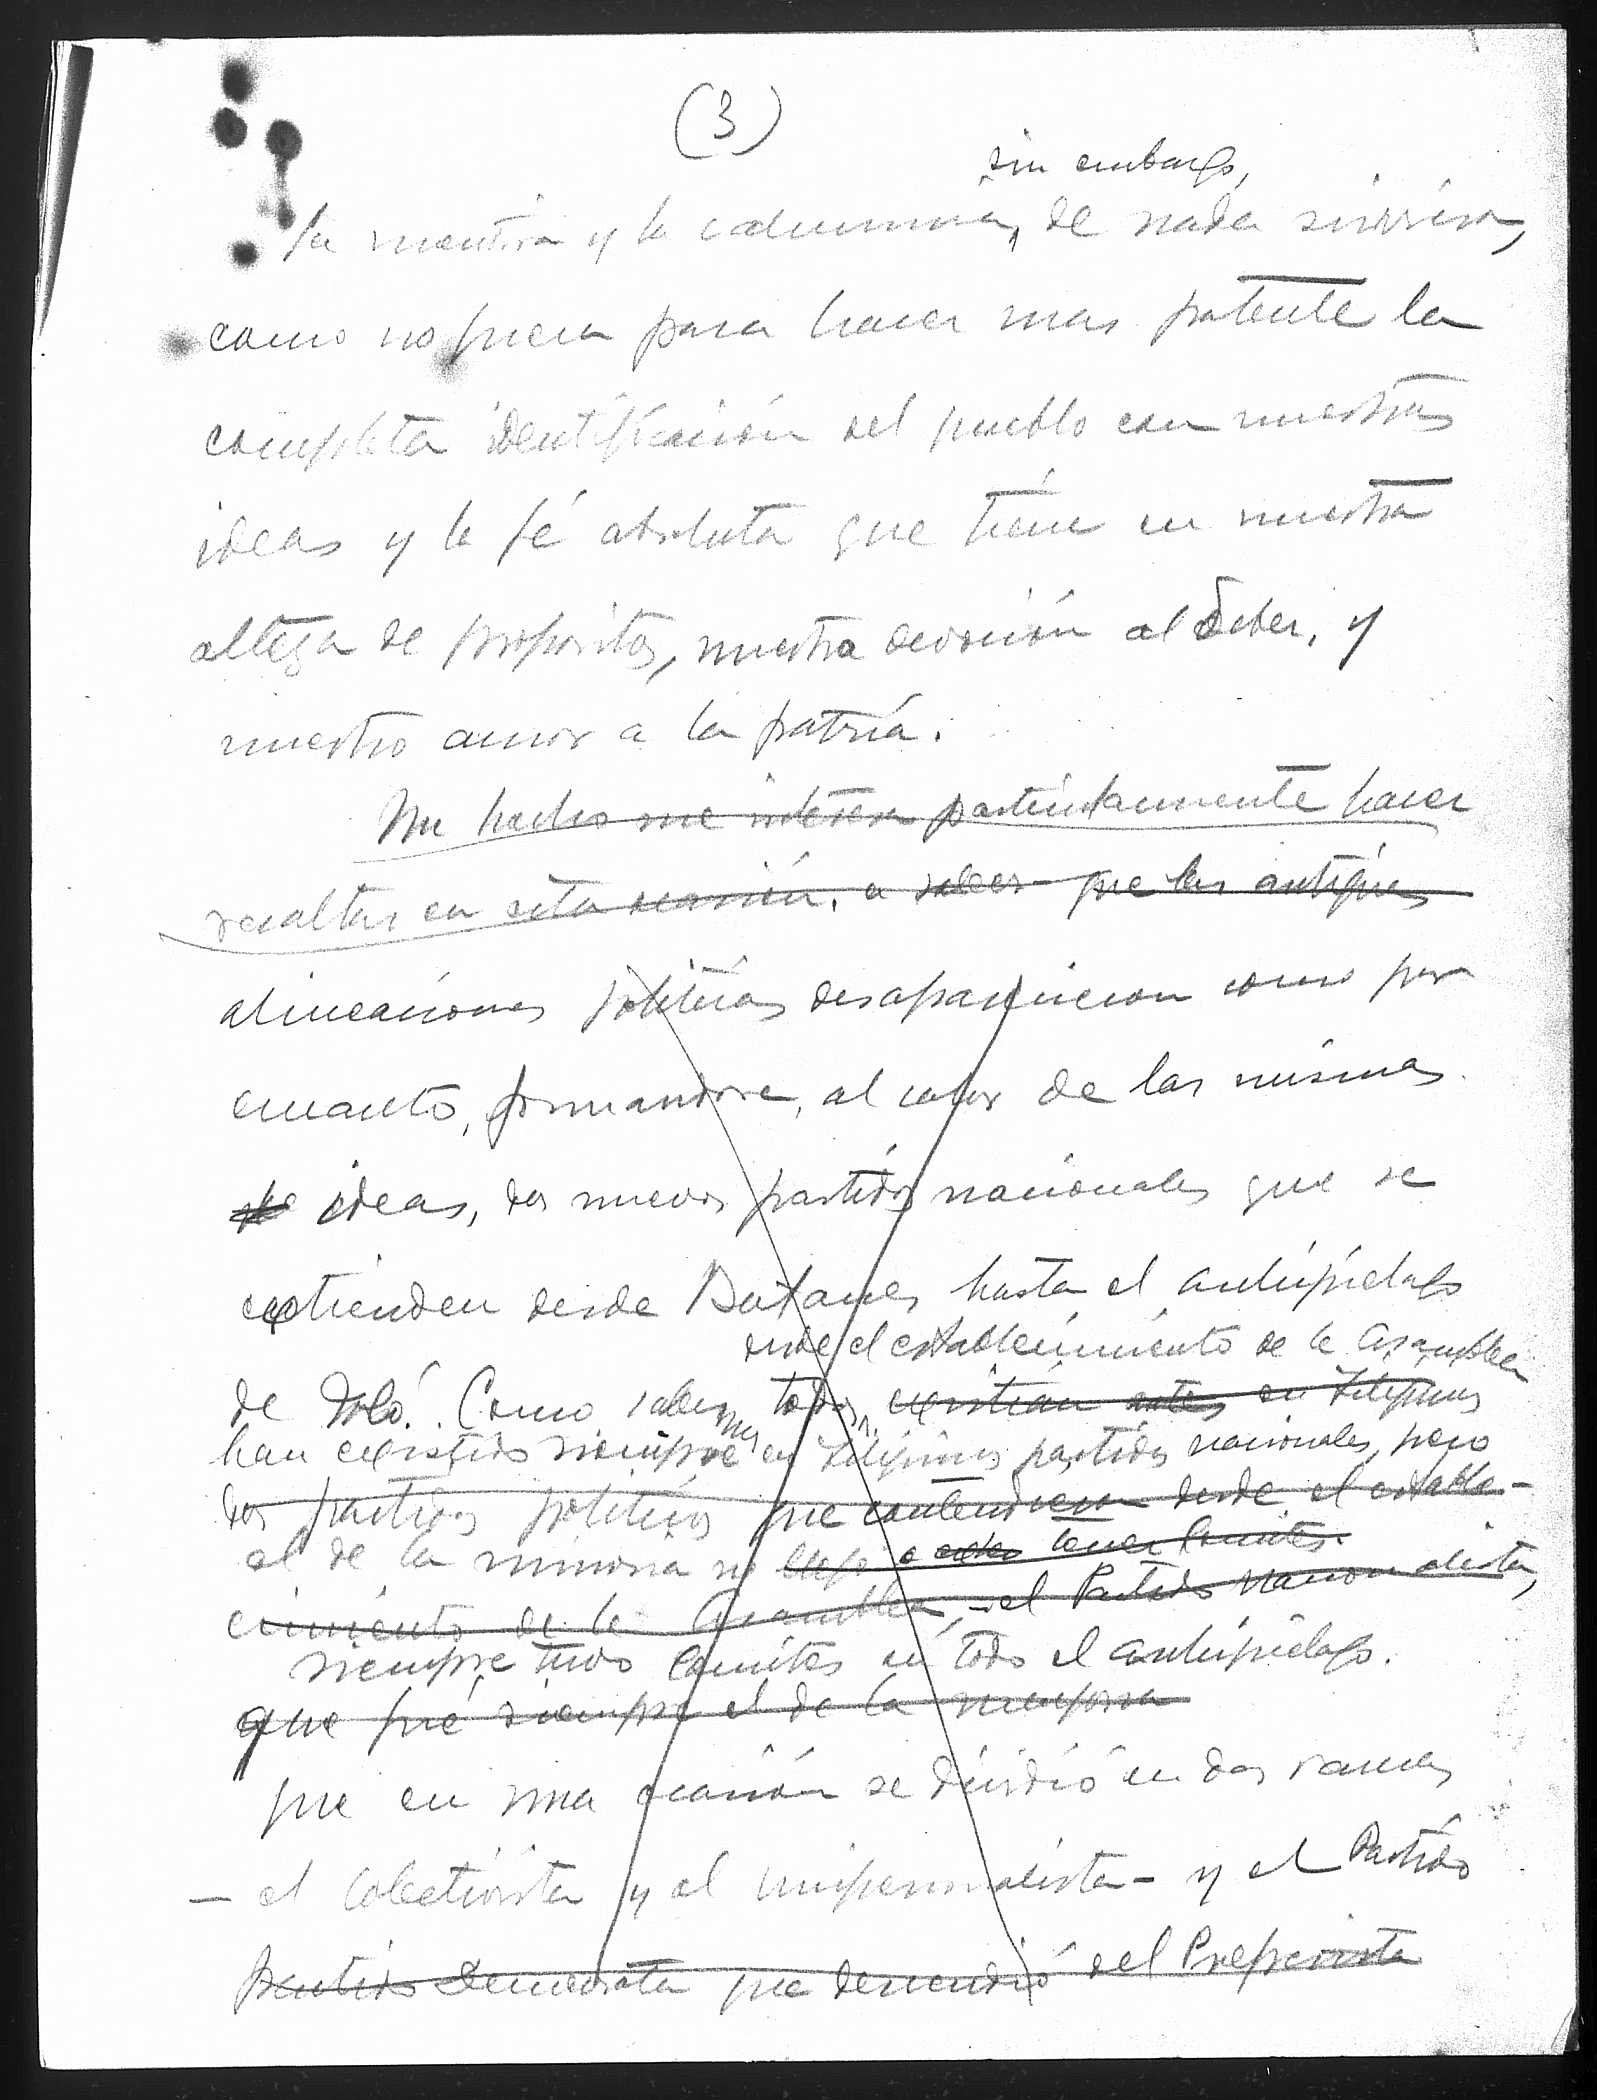 (3)
sin embargo,
La mentira y la calumnia, de nada sirvieron,
como no fuera para hacer mas patente la
completa identificación del pueblo con nuestras
ideas y la fé absoluta que tiene en nuestra
alteza de propositos, nuestra devoción al deber, y
nuestro amor a la patria.
Un hecho me interesa particularmente hacer
resaltar en esta ocasión, a saber que las antiguas
alineaciones politicas desaparecieron como por
encanto, formandose, al calor de las mismas
ideas, dos nuevos partidos nacionales que se
extienden desde Batanes hasta el archipielago
desde el establecimiento de la Asamblea
de Joló. Como sabemos todos, existian antes en Filipinas
han existido siempre en Filipinas partidos nacionales, pero
dos partidos politicos que contendieron desde el estable-
el de la minoria no llego a tener Comites.
cimiento de la Asamblea, - el Partido Nacionalista,
siempre tuvo Comites en todo el archipielago.
que fué siempre el de la mayoria
que en una ocasión se dividió en dos ramas
- el Colectivista y el Unipersonalista - y el Partido
Partido Democrata que descendió del Progresista